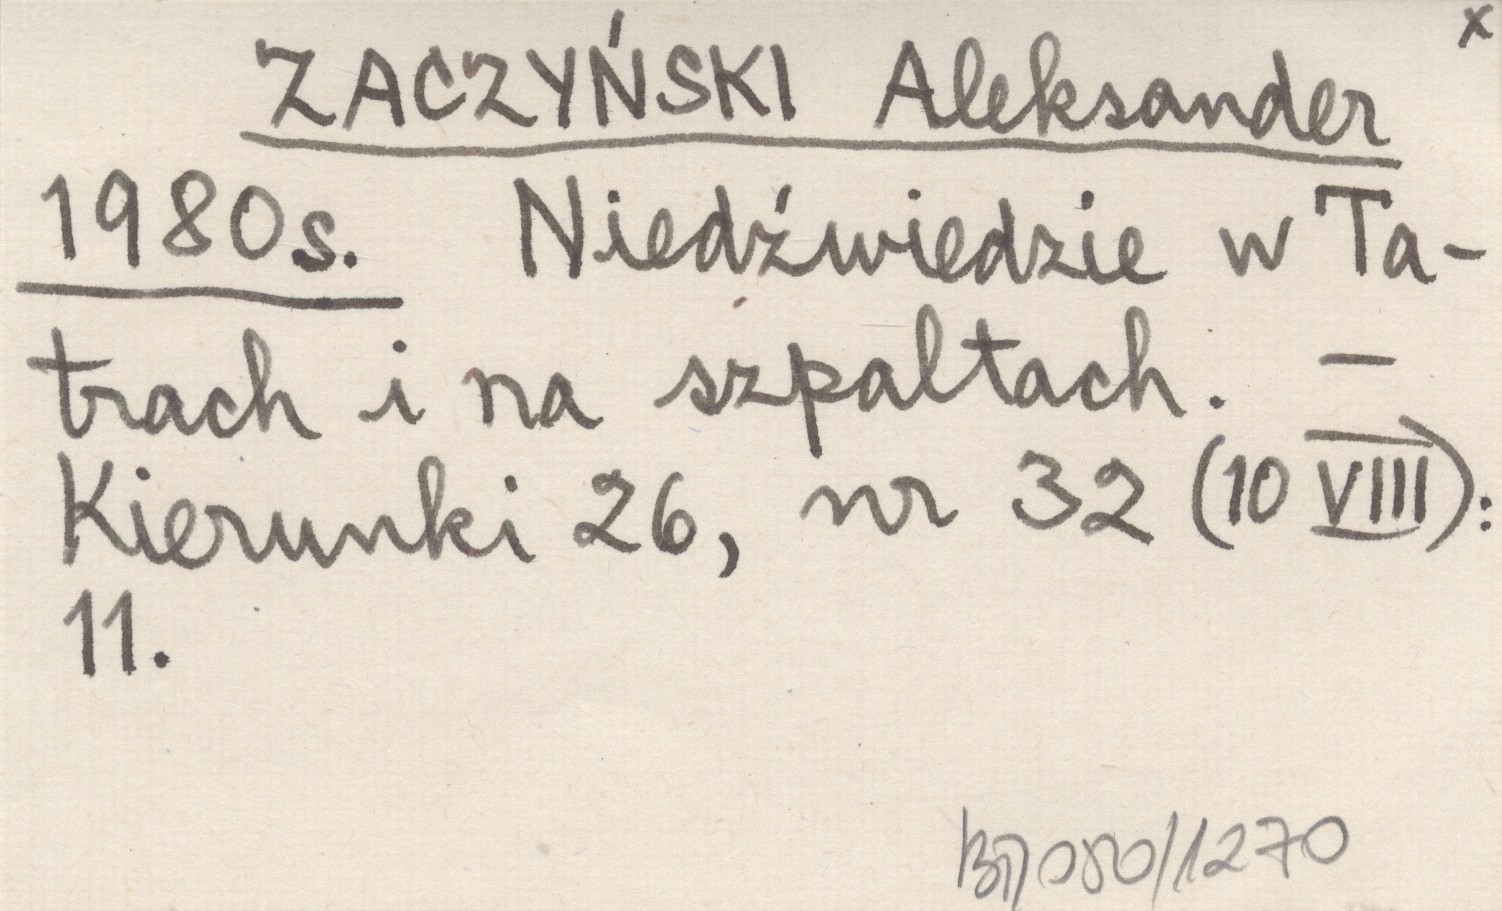 x
ZACZYŃSKI Aleksander
1980s. Niedźwiedzie w Ta-
trach i na szpaltach. —
Kierunki 26, nr 32 (10 VIII):
11.
080/1270